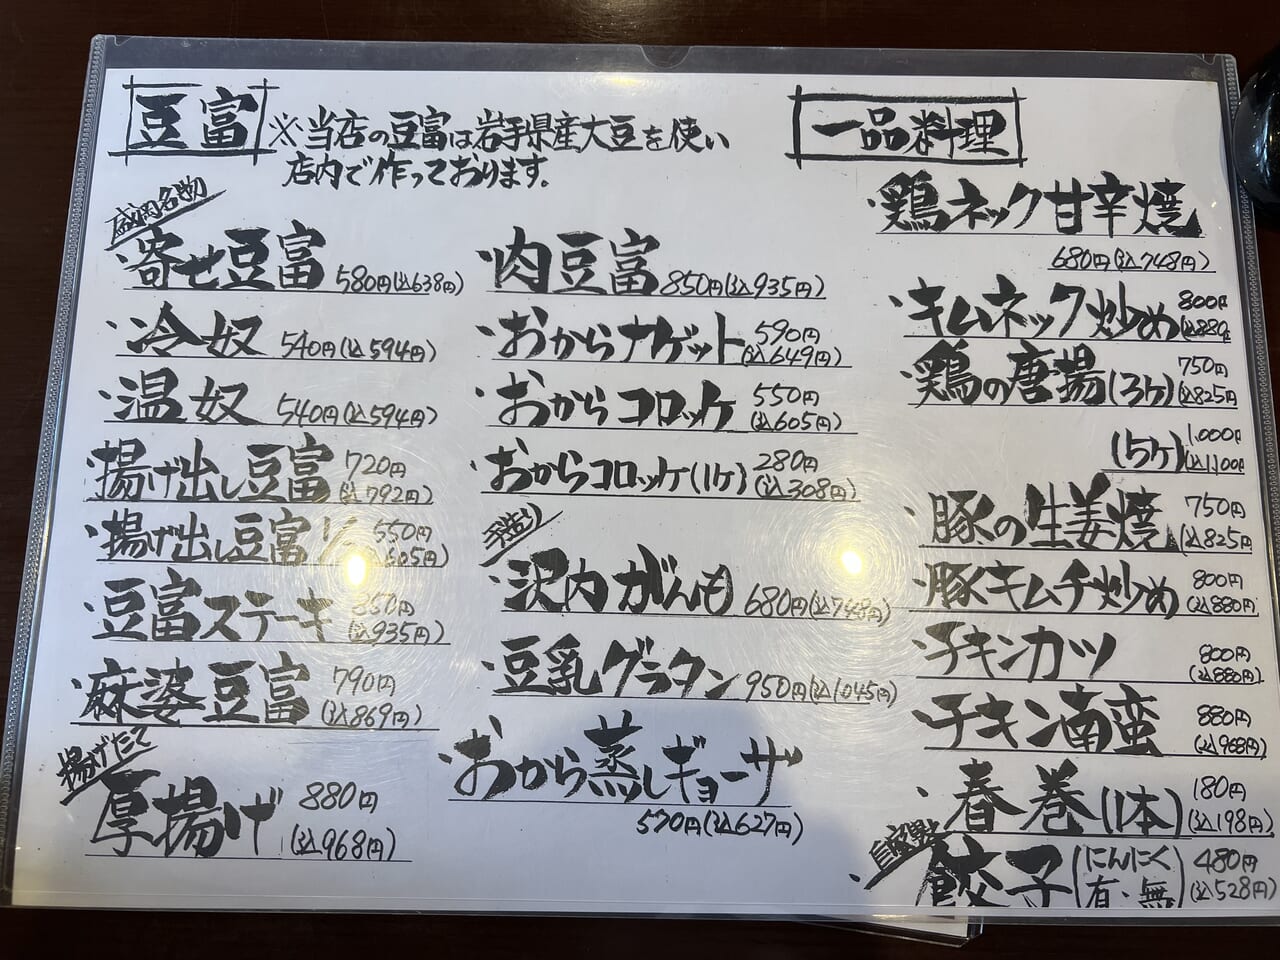 豆富
※当店の豆富は岩手県産大豆を使い
店内で作っております。
盛岡名物
・寄せ豆富 580円(込638円)
・冷奴 540円(込594円)
・温奴 540円(込594円)
・揚げ出し豆富 720円(込792円)
・揚げ出し豆富½ 550円(込605円)
・豆富ステーキ 850円(込935円)
・麻婆豆富 790円(込869円)
揚げたて
・厚揚げ 880円(込968円)
・肉豆富 850円(込935円)
・おからナゲット 590円(込649円)
・おからコロッケ 550円(込605円)
・おからコロッケ(1ケ) 280円(込308円)
手造り
・沢内がんも 680円(込748円)
・豆乳グラタン 950円(込1045円)
・おから蒸しギョーザ
570円(込627円)
一品料理
・鶏ネック甘辛焼
680円(込748円)
・キムネック炒め 800円(込880
・鶏の唐揚(3ケ) 750円(込825円
(5ケ) 1,000円(込1,100円
・豚の生姜焼 750円(込825円
・豚キムチ炒め 800円(込880円)
・チキンカツ 800円(込880円)
・チキン南蛮 880円(込968円)
・春巻(1本) 180円(込198円)
自家製
・餃子(にんにく有・無) 480円(込528円)